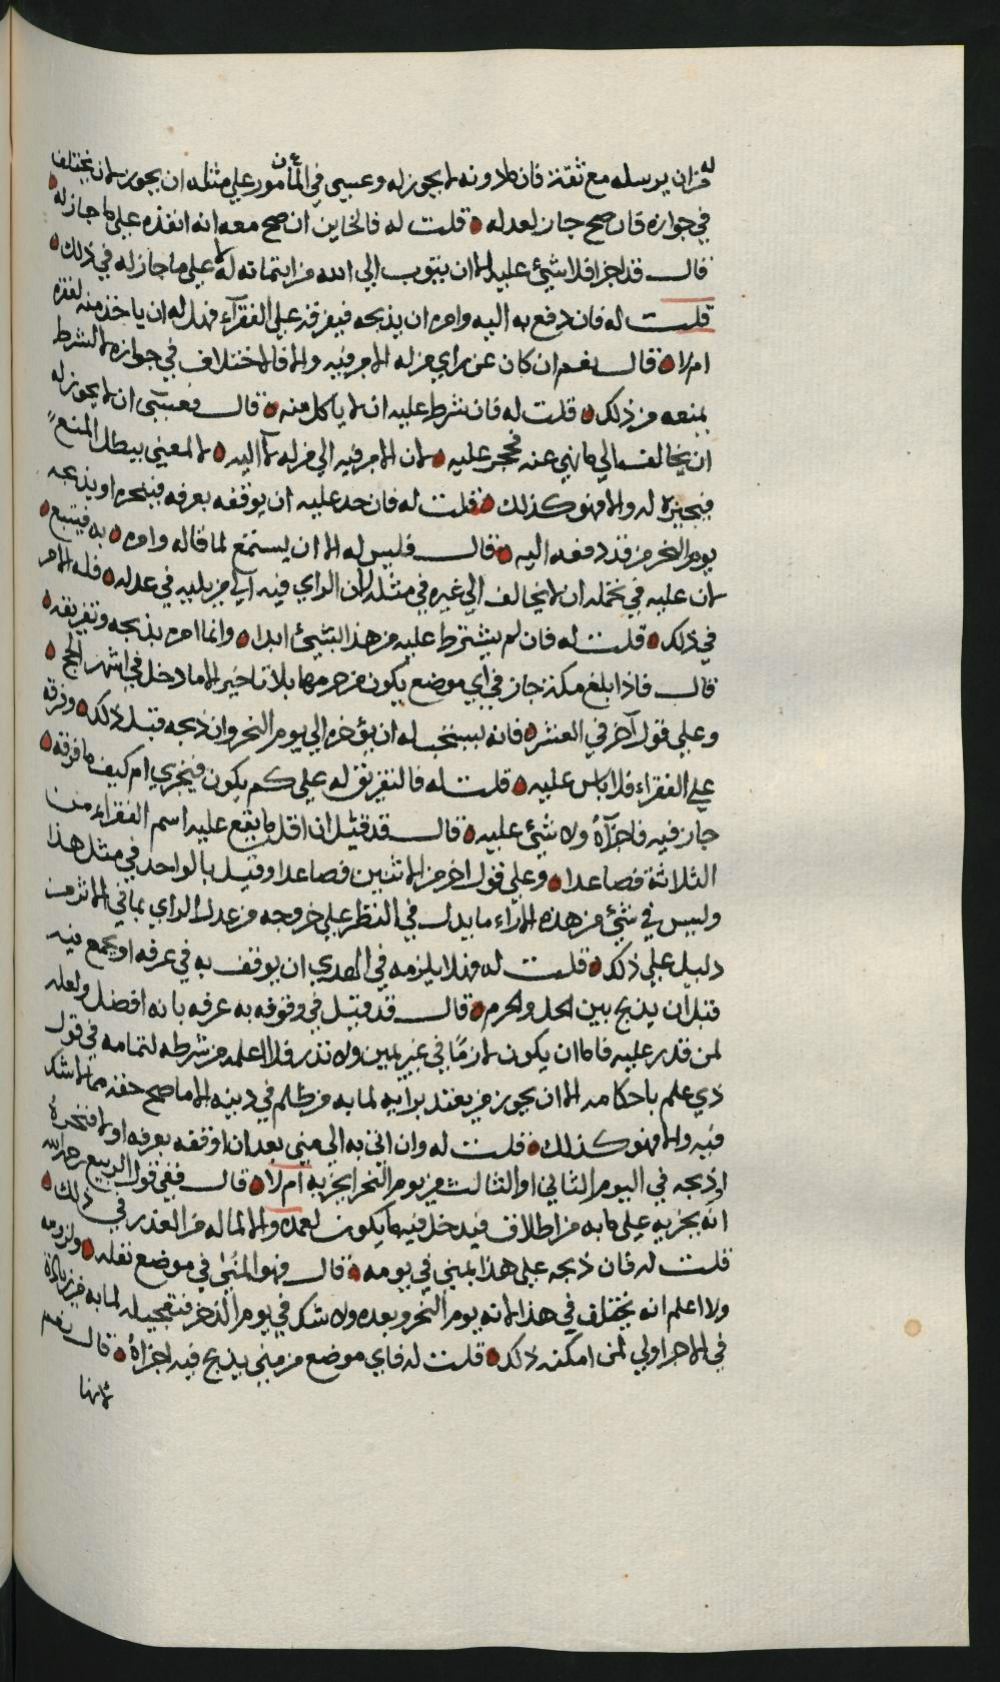 له من ان يرسله مع ثقة فان ما دونه لا يجوز له وعسى في المأمون على مثله ان يجوز لان يختلف
في جوازه فان صح جاز لعدله قلت له فالخاين ان صح معه انه انفذه على ما جاز له
قال قد اجزا فلا شيئ عليه الا ان يتوب الي الله من ايتمانه له لا على ما جاز له في ذلك
قلت له فان دفع به اليه وامره ان يذبحه فيفرقه على الفقرآء فهل له ان ياخذ منه لفقره
ام لا قال نعم ان كان عن راي من له الامر فيه والا فالاختلاف في جوازه لا لشرط
يمنعه من ذلك قلت له فان شرط عليه ان لا ياكل منه قال فعسى ان لا يجوز له
ان يخالفه الي ما نهي عنه فحجر عليه لان الامر فيه الي من له لا اليه لا لمعني يبطل المنع
فيجيزه له والا فهو كذلك قلت له فان حد عليه ان يوقفه بعرفه فينحره او يذبحه
يوم النحر من قد دفعه اليه قال فليس له الا ان يستمع لما قاله وامره به فيتبع
لان عليه في تحمله ان لا يخالف الي غيره في مثله لان الراي فيه الي من يليه في عدله فله الامر
في ذلك قلت له فان لم يشترط عليه من هذا الشيئ ابدا وانما امره بذبحه وتفريقه
قال فاذا بلغ مكة جاز في اي موضع يكون من حرمها بلا تاخير الا ما دخل في اشهر الحج
وعلي قول آخر في العشر فانه يستحب له ان يؤخره الي يوم النحر وان ذبحه قبل ذلك وفرقه
علي الفقراء فلا باس عليه قلت له فالتفريق له على كم يكون فيجزي ام كيف ما فرقه
جاز فيه فاجزآهُ ولا شيئ عليه قال قد قيل ان اقل ما يقع عليه اسم الفقراء من
الثلاثة فصاعدا وعلي قول اخر من الاثنين فصاعدا وقيل بالواحد في مثل هذا
وليس في شيئ من هذه الآراء ما يدل في النظر على خروجه من عدل الراي بما في الاثر من
دليل علي ذلك قلت له فهل يلزمه في الهدي ان يوقف به في عرفه او يجمع فيه
قبل ان يذبح بين الحل والحرم قال قد قيل في وقوفه به عرفه بانه افضل ولعله
لمن قدر عليه فاما ان يكون لازمًا في غير يمين ولا نذر فلا اعلمه من شرطه لتمامه في قول
ذي علم باحكامه الا ان يجوز من يعتد برأيه لما به من ظلم في دينه الا ما صح حقه مما لا شك
فيه والا فهو كذلك قلت له وان اتي به الي مني بعد ان اوقفه بعرفه او لا فنحره
او ذبحه في اليوم الثاني او الثالث من يوم النحر ايجزيه ام لا قال ففي قول الربيع رحمه الله
انه يجزيه على ما به من اطلاق فيدخل فيه ما يكون لعمده والا لما له من العذر في ذلك
قلت له فان ذبحه على هذا بمني في يومه قال فهو المُنَى في موضع نفله ولزومه
ولا اعلم انه يختلف في هذا لانه يوم النحر وبعده ولا شك في يوم النحر فتعجيله لما به من زيادة
في الاجر اولي لمن امكنه ذلك قلت له فاي موضع من مني يذبح فيه اجزاهُ قال نعم
لانها